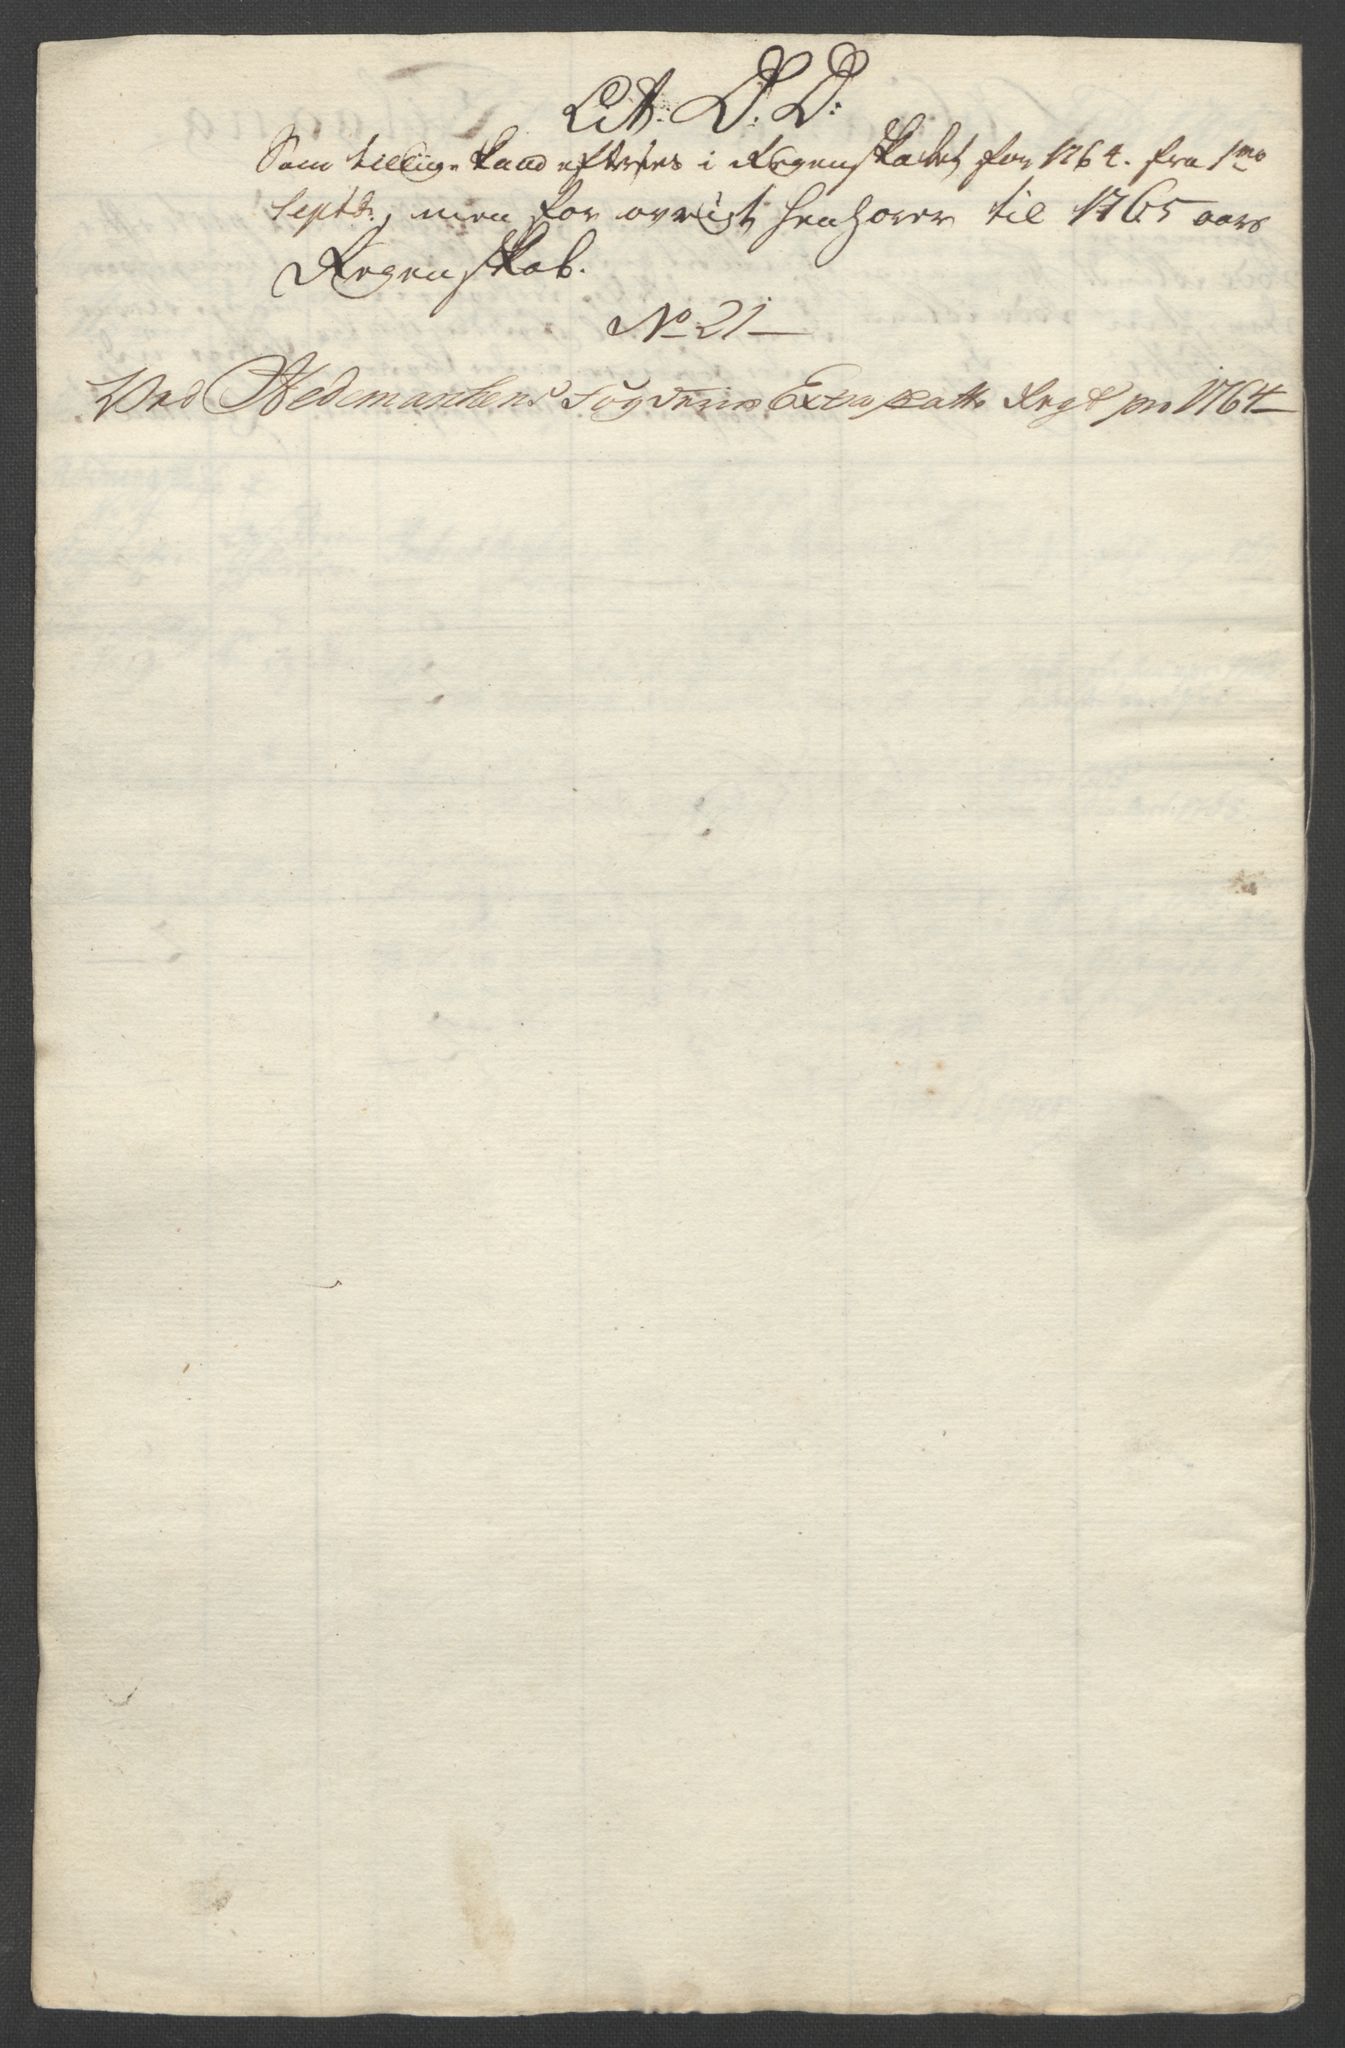 Lit. D. D:
Som tillige kand efterses i Regenskabet for 1764. fra 1mo
Septbr, men for øvrigt henhører til 1765 aars
Regenskab.
No 21
Ved Hedemarkens Fogderies Extra Skatts Regsk pro 1764